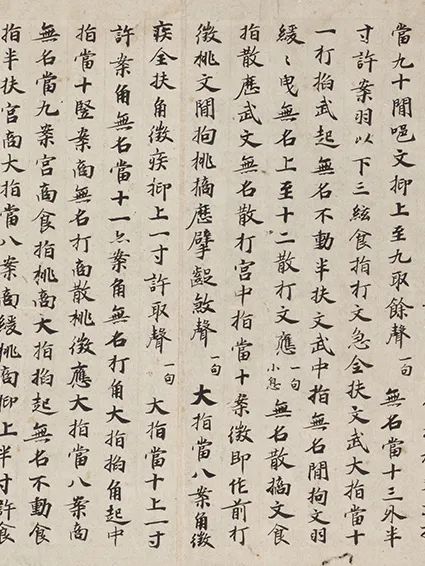 當九十間文抑上至九取餘聲一句　無名當十三外半
寸許案羽以下三絃食指打文急全扶文武大指當十
一打搯武起無名不動半扶文武中指無名間拘文羽
緩〻曳無名上至十二散打文應一句小息無名散摘文食
指散歷武文無名散打宮中指當十案徵即作前打
徵挑文間拘挑摘歷擘斂聲一句　大指當八案角徵
疾全扶角徵疾抑上一寸許取聲一句　大指當十上一寸
許案角無名當十一案角無名打角大指搯角起中
指當十豎案商無名打商散挑徵應大指當八案商
無名當九案宮商食指挑商大指搯起無名不動食
指半扶宮商大指當八案商緩挑商抑上半寸許食